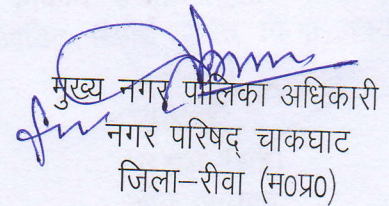 मुख्य नगर पालिका अधिकारी
नगर परिषद् चाकघाट
जिला–रीवा (म0प्र0)